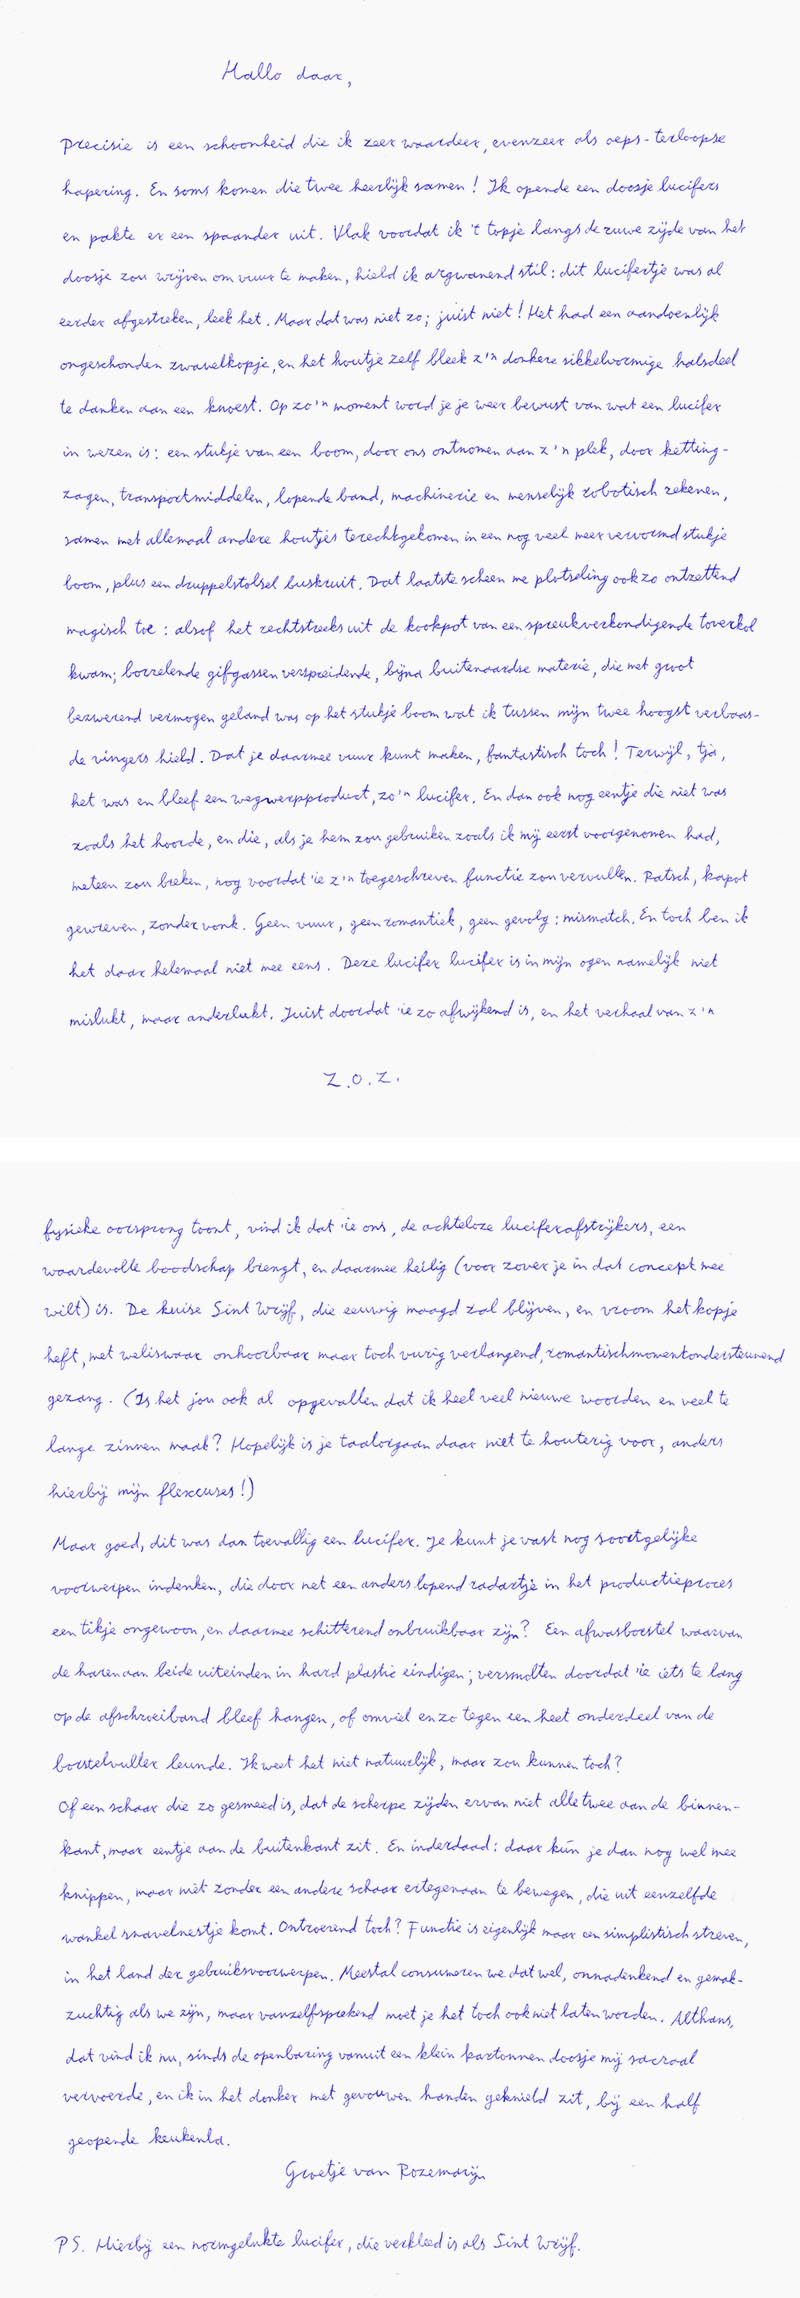 Hallo daar,
Precisie is een schoonheid die ik zeer waardeer, evenzeer als oeps-terloopse
hapering. En soms komen die twee heerlijk samen! Ik opende een doosje lucifers
en pakte er een spaander uit. Vlak voordat ik 't topje langs de ruwe zijde van het
doosje zou wrijven om vuur te maken, hield ik argwanend stil: dit lucifertje was al
eerder afgestreken, leek het. Maar dat was niet zo; juist niet! Het had een aandoenlijk
ongeschonden zwavelkopje, en het houtje zelf bleek z'n donkere sikkelvormige halsdeel
te danken aan een knoest. Op zo'n moment word je je weer bewust van wat een lucifer
in wezen is: een stukje van een boom, door ons ontnomen aan z'n plek, door ketting-
zagen, transportmiddelen, lopende band, machinerie en menselijk robotisch rekenen,
samen met allemaal andere houtjes terechtgekomen in een nog veel meer vervormd stukje
boom, plus een druppelstolsel buskruit. Dat laatste scheen me plotseling ook zo ontzettend
magisch toe: alsof het rechtstreeks uit de kookpot van een spreukverkondigende toverkol
kwam; borrelende gifgassen verspreidende, bijna buitenaardse materie, die met groot
bezwerend vermogen geland was op het stukje boom wat ik tussen mijn twee hoogst verbaas-
de vingers hield. Dat je daarmee vuur kunt maken, fantastisch toch! Terwijl, tja,
het was en bleef een wegwerpproduct, zo'n lucifer. En dan ook nog eentje die niet was
zoals het hoorde, en die, als je hem zou gebruiken zoals ik mij eerst voorgenomen had,
meteen zou breken, nog voordat 'ie z'n toegeschreven functie zou vervullen. Ratsch, kapot
gewreven, zonder vonk. Geen vuur, geen romantiek, geen gevolg: mismatch. En toch ben ik
het daar helemaal niet mee eens. Deze lucifer lucifer is in mijn ogen namelijk niet
mislukt, maar anderlukt. Juist doordat 'ie zo afwijkend is, en het verhaal van z'n
Z.O.Z.
fysieke oorsprong toont, vind ik dat 'ie ons, de achteloze luciferafstrijkers, een
waardevolle boodschap brengt, en daarmee heilig (voor zover je in dat concept mee
wilt) is. De kuise Sint Wrijf, die eeuwig maagd zal blijven, en vroom het kopje
heft, met weliswaar onhoorbaar maar toch vurig verlangend, romantischmomentondersteunend
gezang. (Is het jou ook al opgevallen dat ik heel veel nieuwe woorden en veel te
lange zinnen maak? Hopelijk is je taalorgaan daar niet te houterig voor, anders
hierbij mijn flexcuses!)
Maar goed, dit was dan toevallig een lucifer. Je kunt je vast nog soortgelijke
voorwerpen indenken, die door net een anders lopend radartje in het productieproces
een tikje ongewoon, en daarmee schitterend onbruikbaar zijn? Een afwasborstel waarvan
de haren aan beide uiteinden in hard plastic eindigen; versmolten doordat 'ie iets te lang
op de afschroeiband bleef hangen, of omviel en zo tegen een heet onderdeel van de
borstelvuller leunde. Ik weet het niet natuurlijk, maar zou kunnen toch?
Of een schaar die zo gesmeed is, dat de scherpe zijden ervan niet alle twee aan de binnen-
kant, maar eentje aan de buitenkant zit. En inderdaad: daar kún je dan nog wel mee
knippen, maar niet zonder een andere schaar ertegenaan te bewegen, die uit eenzelfde
wankel snavelnestje komt. Ontroerend toch? Functie is eigenlijk maar een simplistisch streven,
in het land der gebruiksvoorwerpen. Meestal consumeren we dat wel, onnadenkend en gemak-
zuchtig als we zijn, maar vanzelfsprekend moet je het toch ook niet laten worden. Althans,
dat vind ik nu, sinds de openbaring vanuit een klein kartonnen doosje mij sacraal
vervoerde, en ik in het donker met gevouwen handen geknield zit, bij een half
geopende keukenla.
Groetje van Rozemarijn
PS. Hierbij een normgelukte lucifer, die verkleed is als Sint Wrijf.